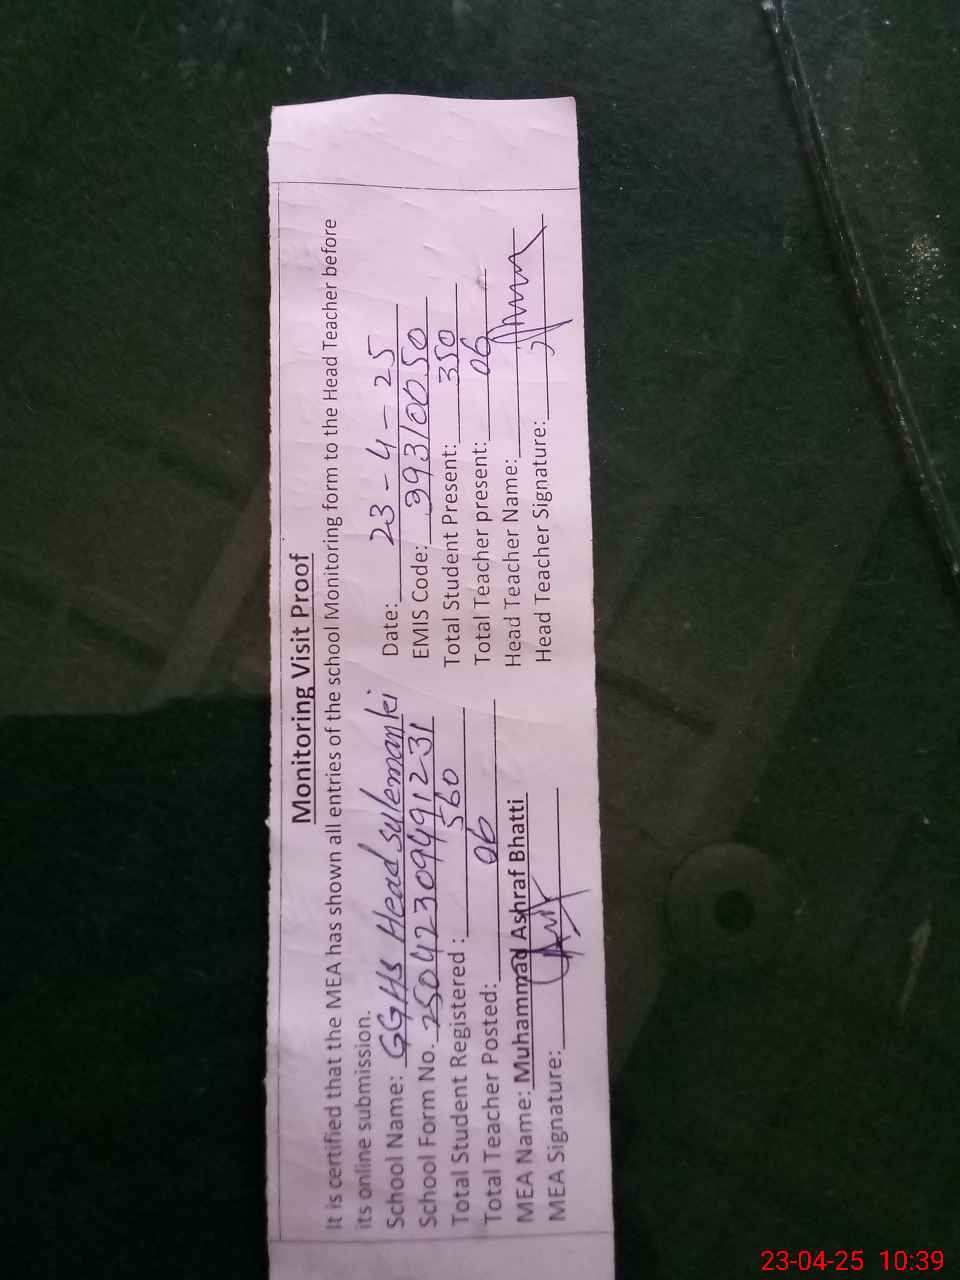 Monitoring Visit Proof
It is certified that the MEA has shown all entries of the school Monitoring form to the Head Teacher before
its online submission.
School Name: GGHS Head sulemanki Date: 23-4-25
School Form No. 250423094491231 EMIS Code: 39310050
Total Student Registered : 560 Total Student Present: 350
Total Teacher Posted: 06 Total Teacher present: 06
MEA Name: Muhammad Ashraf Bhatti Head Teacher Name:
MEA Signature: Head Teacher Signature:
23-04-25 10:39